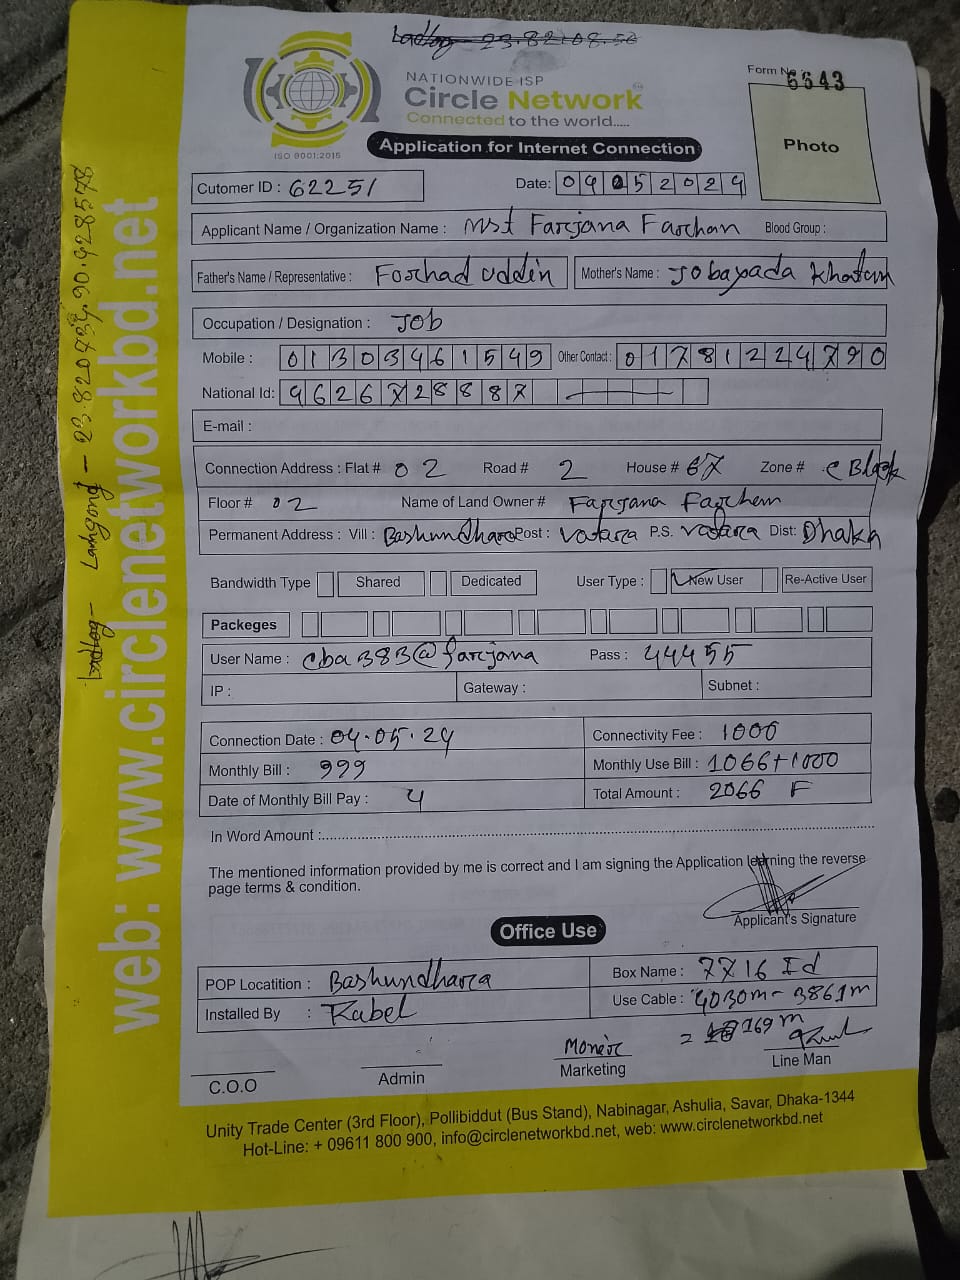 NATIONWIDE ISP
Circle Network
Connected to the world.....
ISO 9001:2015
Form No : 6643
Photo
Application for Internet Connection
Cutomer ID : 62251
Date: 04 05 2024
Applicant Name / Organization Name : Mst Farjana Farhan Blood Group :
Father's Name / Representative : Forhad uddin Mother's Name : Jobayada Khatun
Occupation / Designation : Job
Mobile : 01303461549 Other Contact : 01781224790
National Id: 9626728887
E-mail :
Connection Address : Flat # 02 Road # 2 House # 67 Zone # C Block
Floor # 02 Name of Land Owner # Farjana Farhan
Permanent Address : Vill : Bashundhara Post : Vatara P.S. Vatara Dist: Dhaka
Bandwidth Type Shared Dedicated User Type : New User Re-Active User
Packeges
User Name : cba383@farjana Pass : 44455
IP : Gateway : Subnet :
Connection Date : 04.05.24 Connectivity Fee : 1000
Monthly Bill : 999 Monthly Use Bill : 1066+1000
Date of Monthly Bill Pay : 4 Total Amount : 2066 F
In Word Amount :
The mentioned information provided by me is correct and I am signing the Application learning the reverse
page terms & condition.
Applicant's Signature
Office Use
POP Locatition : Bashundhara Box Name : 7716 Id
Installed By : Rabel Use Cable : 4030m - 3861m
= 169 m
C.O.O Admin Monir Marketing Line Man
Unity Trade Center (3rd Floor), Pollibiddut (Bus Stand), Nabinagar, Ashulia, Savar, Dhaka-1344
Hot-Line: + 09611 800 900, info@circlenetworkbd.net, web: www.circlenetworkbd.net
web: www.circlenetworkbd.net